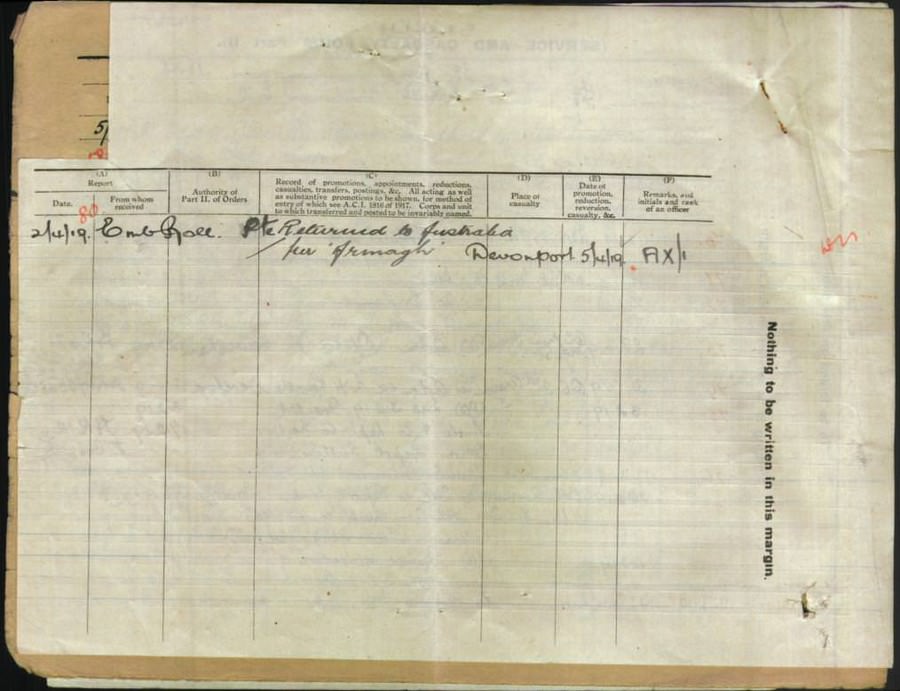 5/
(A)
Report
Date.
From whom
received
(B)
Authority of
Part II. of Orders
(C)
Record of promotions, appointments, reductions,
casualties, transfers, postings, &c. All acting as well
as substantive promotions to be shown, for method of
entry of which see A.C.I. 1816 of 1917. Corps and unit
to which transferred and posted to be invariably named.
(D)
Place of
casualty
(E)
Date of
promotion,
reduction,
reversion,
casualty, &c.
(F)
Remarks, and
initials and rank
of an officer
80
2/4/19. Emb Roll. Pte Returned to Australia
per "Armagh" Devonport 5/4/19. AX/1
Nothing to be written in this margin.